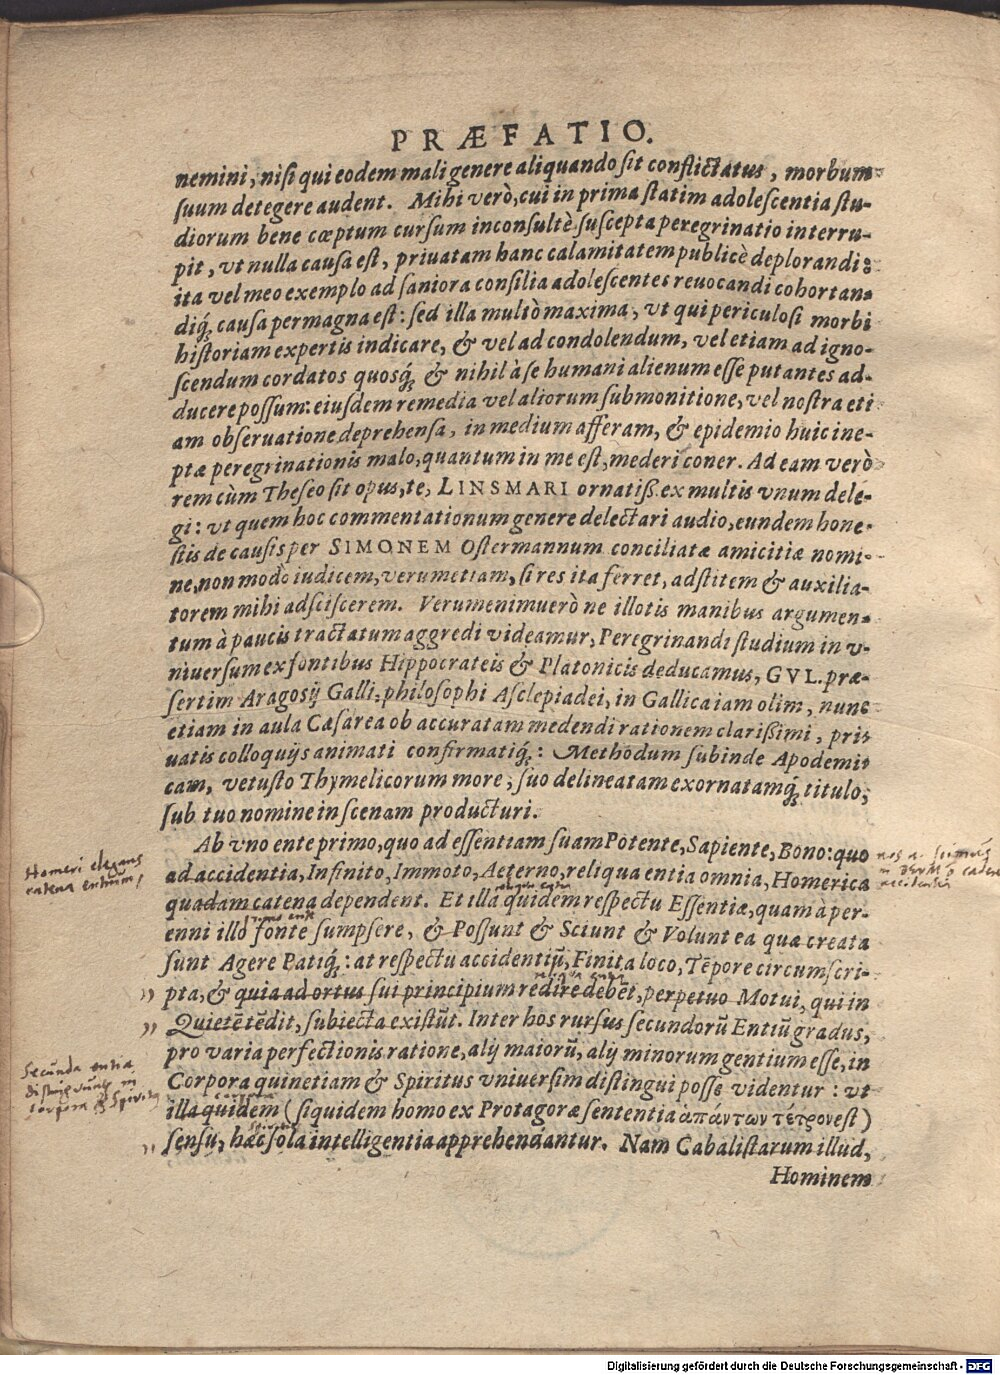 PRÆFATIO.
nemini, nisi qui eodem mali genere aliquando sit conflictatus, morbum
suum detegere audent. Mihi verò, cui in prima statim adolescentia stu-
diorum bene cœptum cursum inconsultè suscepta peregrinatio interru-
pit, vt nulla causa est, priuatam hanc calamitatem publicè deplorandi:
ita vel meo exemplo ad saniora consilia adolescentes reuocandi cohortan-
diq́; causa permagna est: sed illa multò maxima, vt qui periculosi morbi
historiam expertis indicare, & vel ad condolendum, vel etiam ad igno-
scendum cordatos quosq́; & nihil à se humani alienum esse putantes ad-
ducere possum: eiusdem remedia vel aliorum submonitione, vel nostra eti
am obseruatione deprehensa, in medium afferam, & epidemio huic ine-
ptæ peregrinationis malo, quantum in me est, mederi coner. Ad eam verò
rem cùm Theseo sit opus, te, LINSMARI ornatiß. ex multis vnum dele-
gi: vt quem hoc commentationum genere delectari audio, eundem hone-
stis de causis per SIMONEM Ostermannum conciliatæ amicitiæ nomi-
ne, non modo iudicem, verumetiam, si res ita ferret, adstitem & auxilia-
torem mihi adsciscerem. Verumenimuerò ne illotis manibus argumen-
tum à paucis tractatum aggredi videamur, Peregrinandi studium in v-
niuersum ex fontibus Hippocrateis & Platonicis deducamus, GVL. præ-
sertim Aragosij Galli, philosophi Asclepiadei, in Gallica iam olim, nunc
etiam in aula Cæsarea ob accuratam medendi rationem clarißimi, pri-
uatis colloquijs animati confirmatiq́;: Methodum subinde Apodemi-
cam, vetusto Thymelicorum more, suo delineatam exornatamq́; titulo,
sub tuo nomine in scenam producturi.
Ab vno ente primo, quo ad essentiam suam Potente, Sapiente, Bono: quo
ad accidentia, Infinito, Immoto, Aeterno, reliqua entia omnia, Homerica
quadam catena dependent. Et illa quidem respectu Essentiæ, quam à per-
enni illo fonte sumpsere, & Possunt & Sciunt & Volunt ea quæ creata
sunt Agere Patiq́;: at respectu accidentiũ, Finita loco, Tẽpore circumscri-
pta, & quia ad ortus sui principium redire debẽt, perpetuo Motui, qui in
Quietẽ tẽdit, subiecta existũt. Inter hos rursus secundorũ Entiũ gradus,
pro varia perfectionis ratione, alij maiorũ, alij minorum gentium esse, in
Corpora quinetiam & Spiritus vniuersim distingui posse videntur: vt
illa quidem (siquidem homo ex Protagoræ sententia ἁπάντων τέτρον est)
sensu, hæc sola intelligentia apprehendantur. Nam Cabalistarum illud,
Hominem
Homeri elegans
catena entium
reliqua entia
primo ente
reliqua entia
Secunda entia
distinguunt in
corpora & Spiritus
corpora
Spiritus
Digitalisierung gefördert durch die Deutsche Forschungsgemeinschaft - DFG